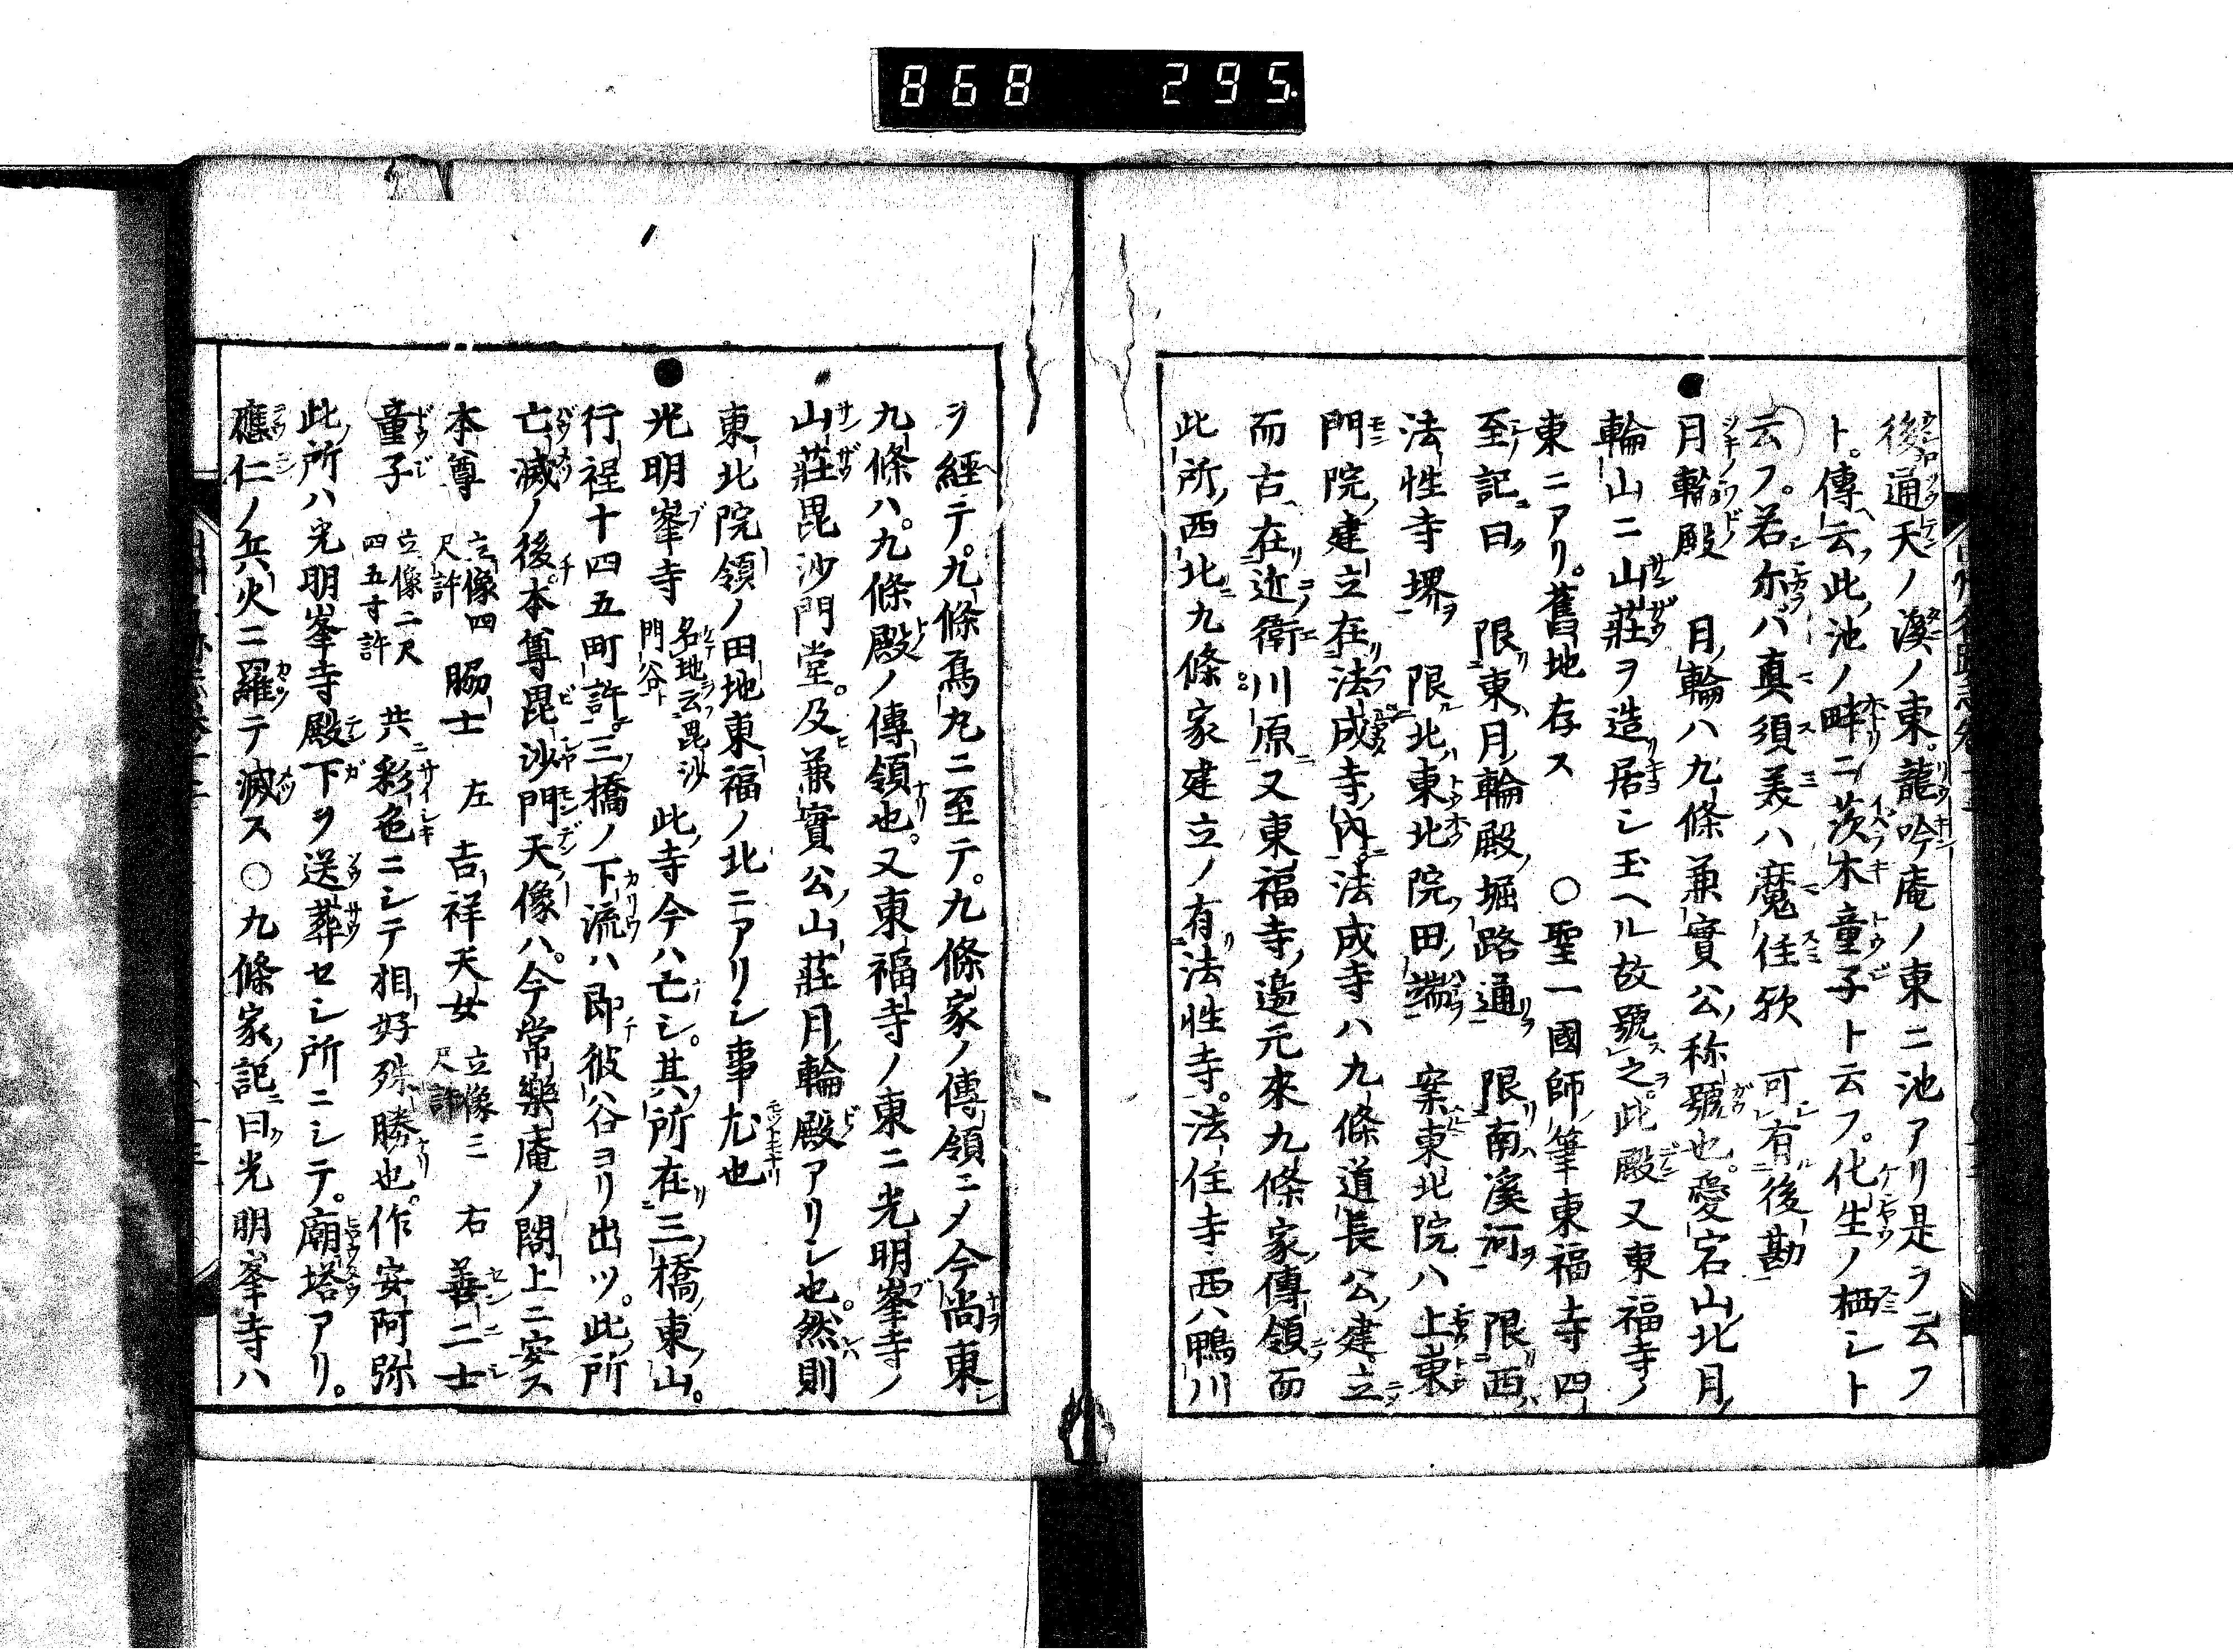 868 295
後通天ノ溪ノ東。龍吟庵ノ東ニ池アリ是ヲ云フ
ト。傳云此池ノ畔ニ茨木童子ト云フ。化生ノ栖シト
云フ。若尓バ真須美ハ魔住欤 可有後勘
●月輪殿 月輪ハ九條兼實公称號也。愛宕山北月
輪山ニ山荘ヲ造居シ玉ヘル故號之。此殿又東福寺ノ
東ニアリ。舊地存ス ○聖一國師筆東福寺四
至記曰 限東月輪殿堀路通 限南溪河 限西
法性寺堺 限北東北院田端 案東北院ハ上東
門院建立在法成寺内。法成寺ハ九條道長公建立
而古在近衛川原又東福寺邉元來九條家傳領而
此所西北九條家建立ノ有法性寺。法住寺西ハ鴨川
ヲ經テ。九條爲九ニ至テ。九條家ノ傳領ニメ今尚東
九條ハ。九條殿ノ傳領也。又東福寺ノ東ニ光明峯寺ノ
山荘毘沙門堂。及兼實公山荘月輪殿アリシ也。然則
東北院領ノ田地東福ノ北ニアリシ事尤也
●光明峯寺 名地云毘沙門谷ト 此寺今ハ亡シ。其所在三橋東山。
行程十四五町許。三橋ノ下流ハ即彼谷ヨリ出ツ。此所
亡滅ノ後。本尊毘沙門天像ハ。今常樂庵ノ閣上ニ安ス
本尊 立像四尺許 脇士 左 吉祥天女 立像三尺許 右 善二士
童子 立像二尺四五寸許 共彩色ニシテ相好殊勝也。作安阿弥
此所ハ光明峯寺殿下ヲ送葬セシ所ニシテ。廟塔アリ。
應仁ノ兵火ニ羅テ滅ス ○九條家記曰光明峯寺ハ